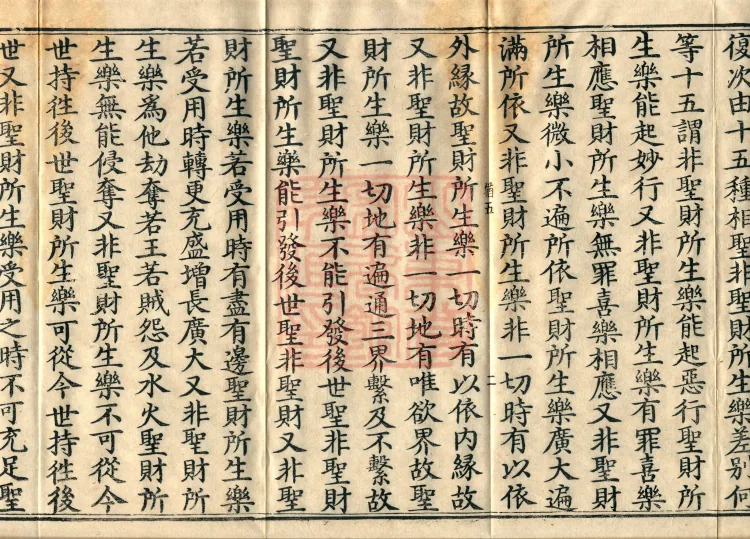 復次由十五種相聖非聖財所生樂差别何
等十五謂非聖財所生樂能起惡行聖財所
生樂能起妙行又非聖財所生樂有罪喜樂
相應聖財所生樂無罪喜樂相應又非聖財
所生樂微小不遍所依聖財所生樂廣大遍
滿所依又非聖財所生樂非一切時有以依
二
外緣故聖財所生樂一切時有以依內緣故
又非聖財所生樂非一切地有唯欲界故聖
財所生樂一切地有遍通三界繫及不繫故
又非聖財所生樂不能引發後世聖非聖財
聖財所生樂能引發後世聖非聖財又非聖
財所生樂若受用時有盡有邊聖財所生樂
若受用時轉更充盛增長廣大又非聖財所
生樂為他劫奪若王若賊怨及水火聖財所
生樂無能侵奪又非聖財所生樂不可從今
世持徃後世聖財所生樂可從今世持徃後
世又非聖財所生樂受用之時不可充足聖